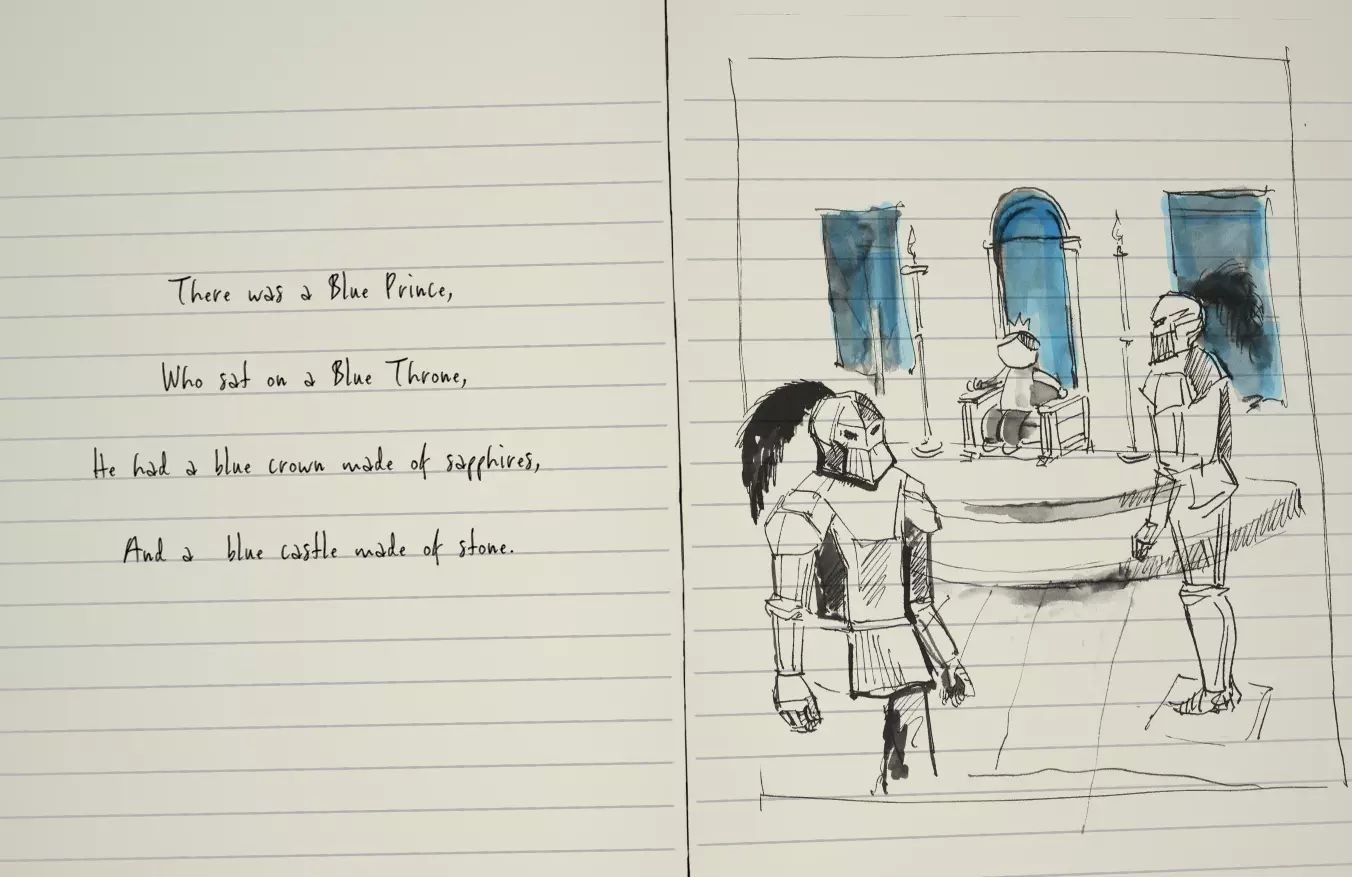 There was a Blue Prince,
Who sat on a Blue Throne,
He had a blue crown made of sapphires,
And a blue castle made of stone.